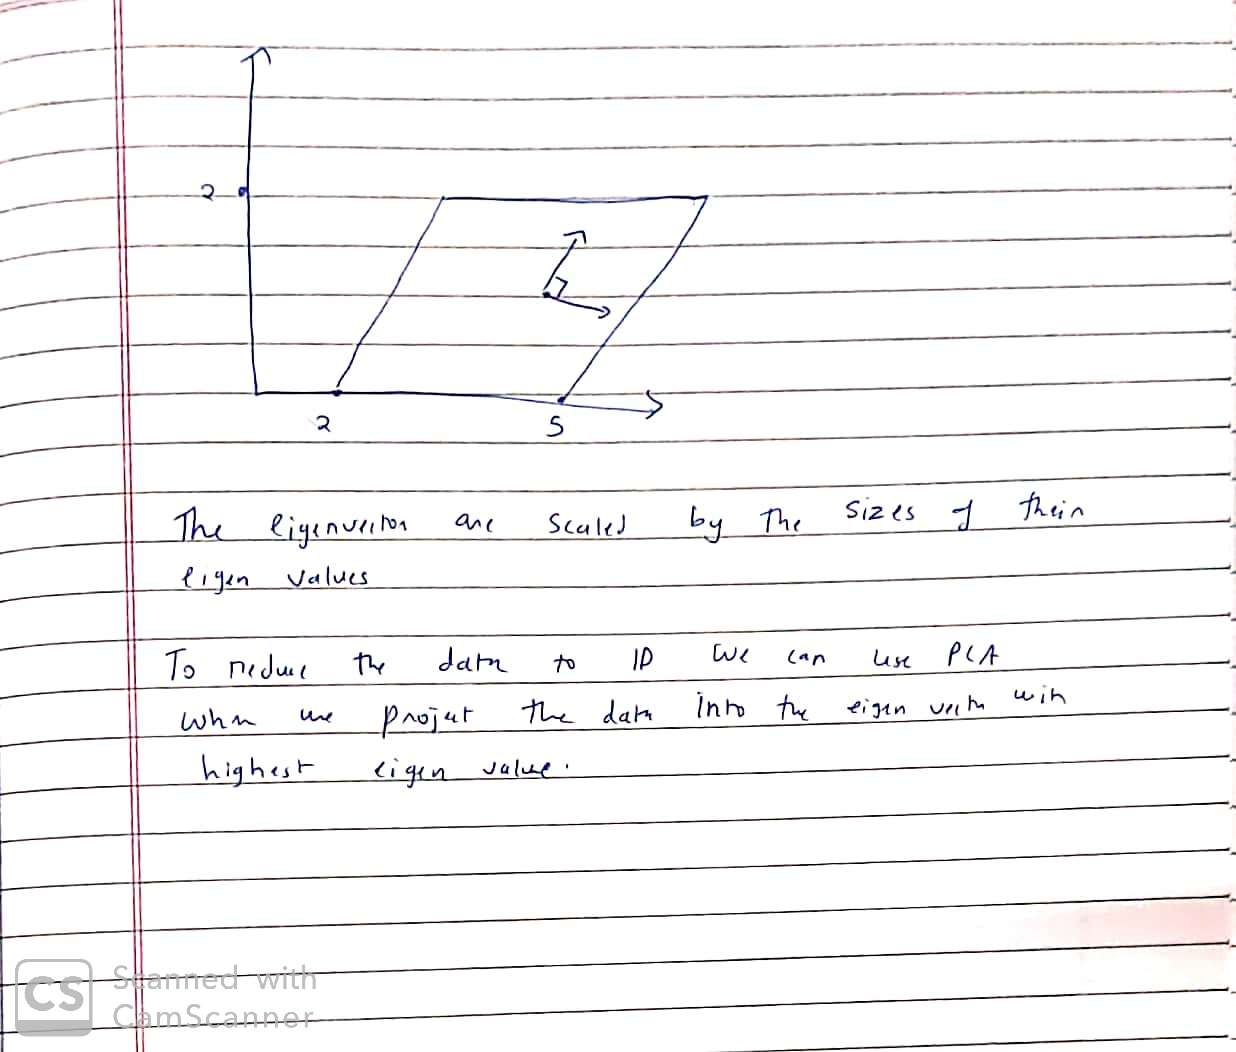 2
2
5
The eigenvector are scaled by The sizes of their
eigen values
To reduce the data to 1D we can use PCA
when we project the data into the eigen vector with
highest eigen value.
CS Scanned with
CamScanner